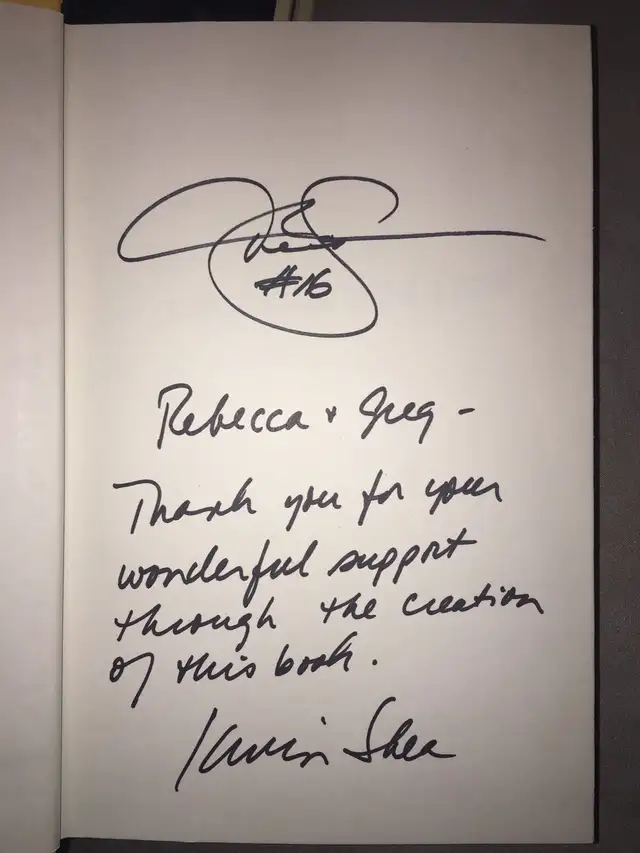 #16
Rebecca + Greg -
Thank you for your
wonderful support
through the creation
of this book.
Kevin Shea